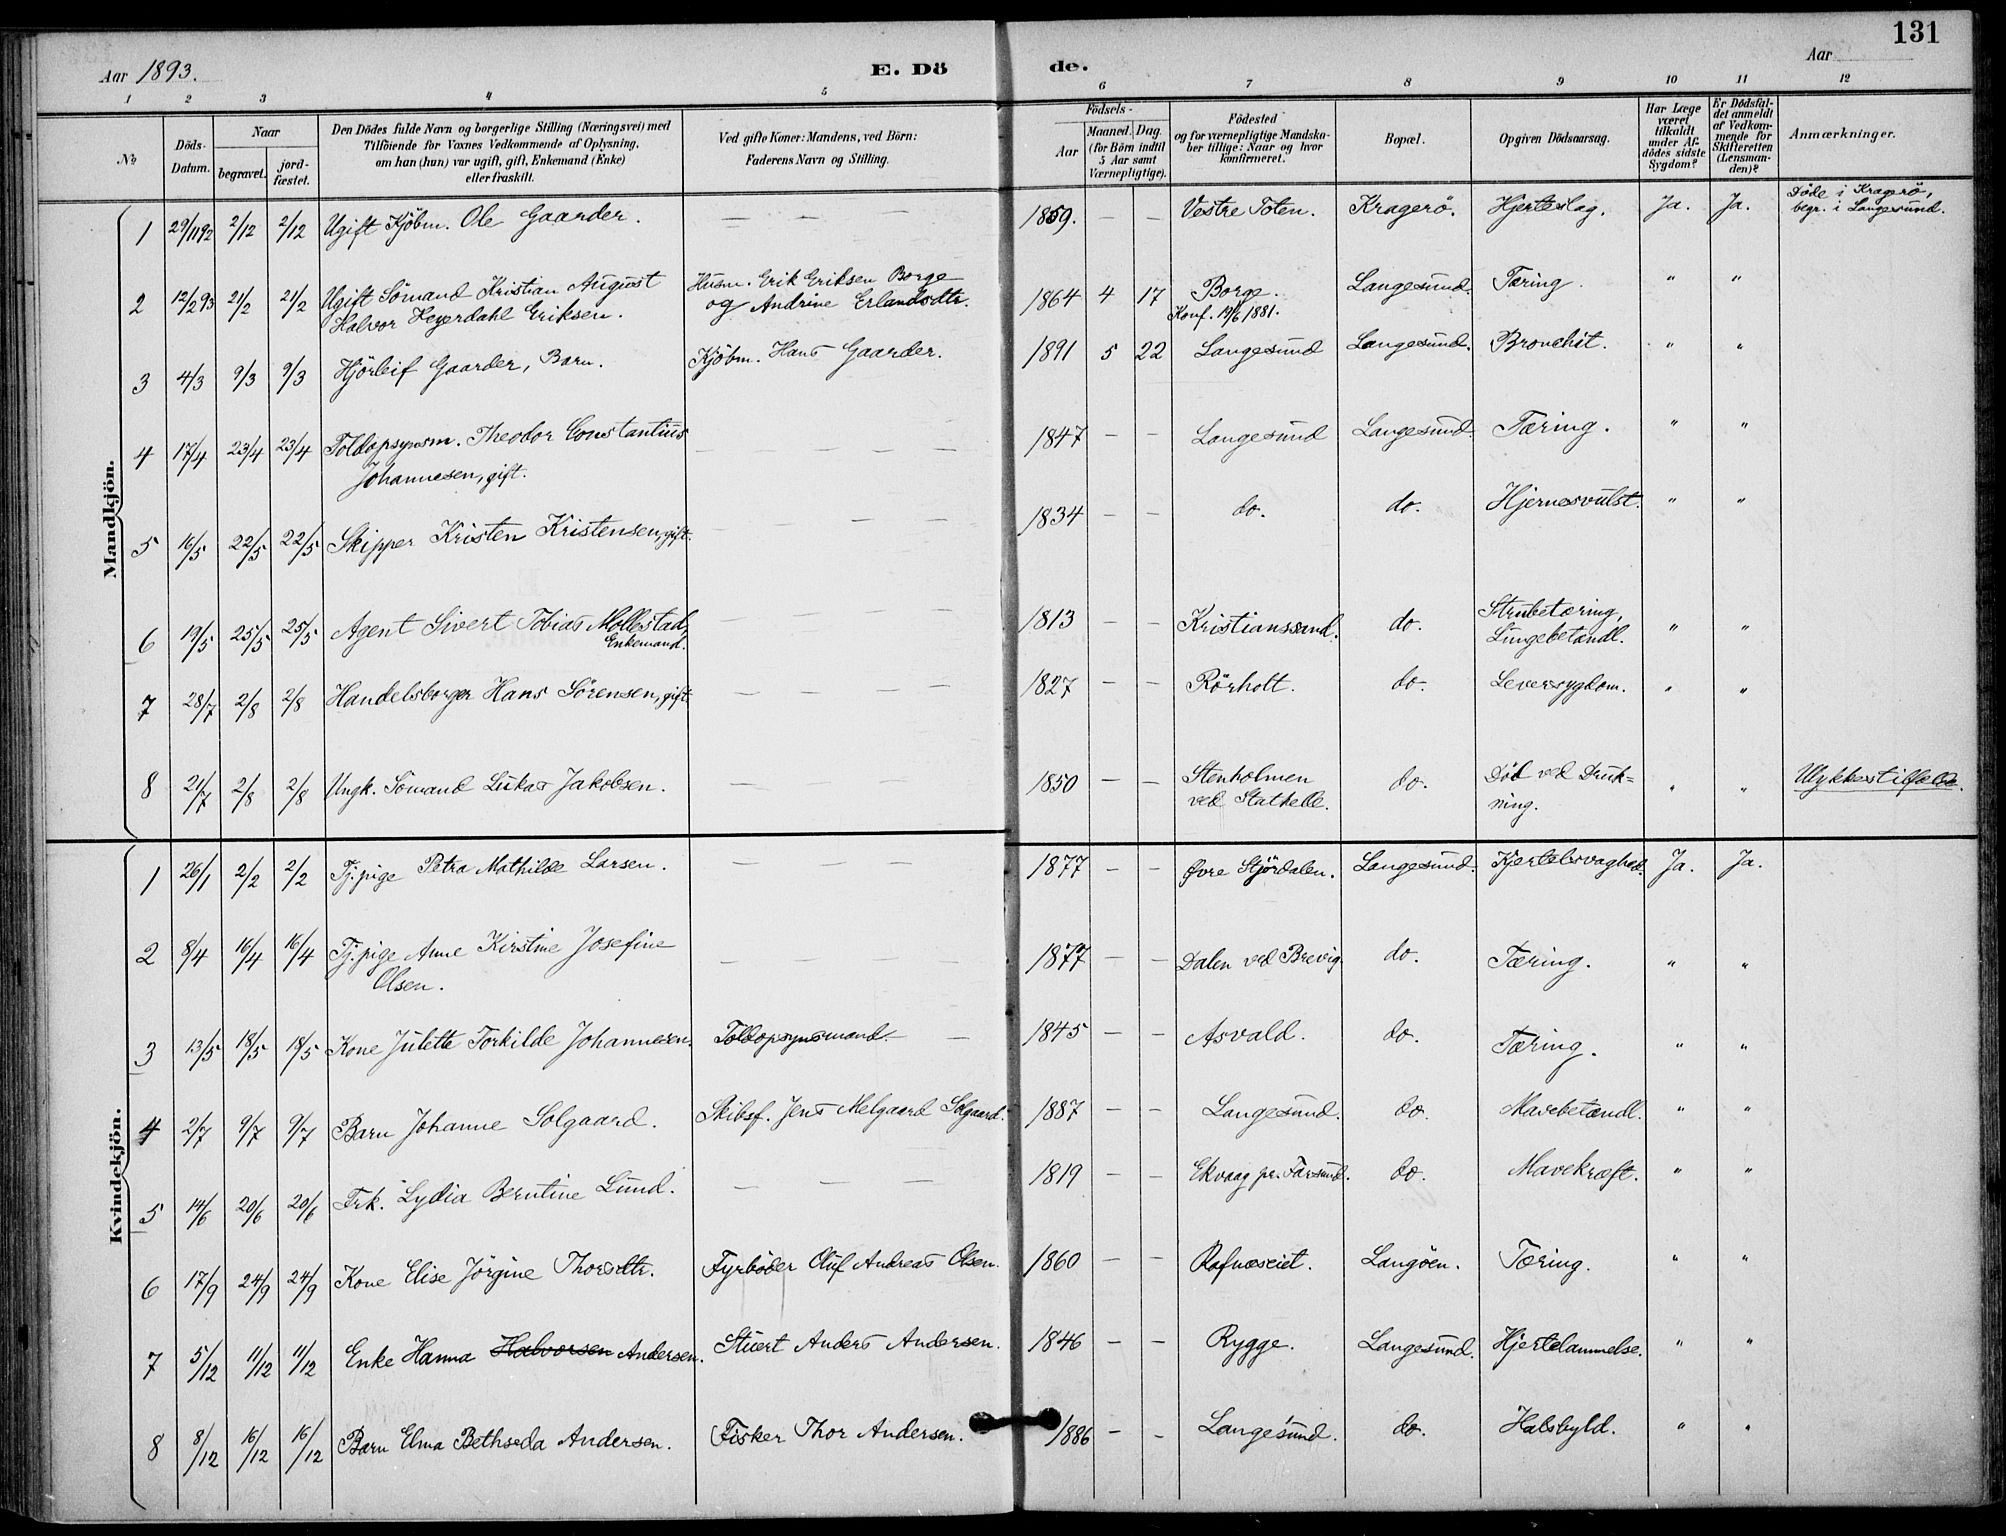 131
Aar 1893.
E. Dö
de.
Aar
1 2 3 4 5 6 7 8 9 10 11 12
№
Döds-Datum.
Naar
begravet.
jord-fæstet.
Den Dödes fulde Navn og borgerlige Stilling (Næringsvei) med
Tilföiende for Voxnes Vedkommende af Oplysning,
om han (hun) var ugift, gift, Enkemand (Enke)
eller fraskilt.
Ved gifte Koner: Mandens, ved Börn:
Faderens Navn og Stilling.
Födsels-
Aar
Maaned. Dag.
(for Börn indtil
5 Aar samt
Værnepligtige).
Födested
og for værnepligtige Mandska-
ber tillige: Naar og hvor
konfirmeret.
Bopæl.
Opgiven Dödsaarsag.
Har Læge
været
tilkaldt
under Af-
dödes sidste
Sygdom?
Er Dödsfal-
det anmeldt
af Vedkom-
mende for
Skifteretten
(Lensman-
den)?
Anmærkninger.
Mandkjön.
1 29/1192 2/12 2/12 Ugift Kjöbm. Ole Gaarder. — — — 1859. — Vestre Toten. Kragerö. Hjerteslag. Ja. Ja. Döde i Kragerö,
begr. i Langesund.
2 12/293 21/2 21/2 Ugift Sömand Kristian August
Halvor Heyerdahl Eriksen.
Husm. Erik Eriksen Borge
og Andrine Erlandsdtr.
1864 4 17 Borge.
Konf. 19/6 1881.
Langesund. Tæring. " "
3 4/3 9/3 9/3 Hjörleif Gaarder, Barn. Kjöbm. Hans Gaarder. 1891 5 22 Langesund Langesund. Bronchit. " "
4 17/4 23/4 23/4 Toldopsynsm. Theodor Constantius
Johannesen, gift.
— — — — 1847 — — Langesund Langesund. Tæring. " "
5 16/5 22/5 22/5 Skipper Kristen Kristensen, gift. — — — — 1834 — — do. do. Hjernesvulst. " "
6 19/5 25/5 25/5 Agent Sivert Tobias Mollestad,
Enkemand.
— — — — 1813 — — Kristianssand. do. Strubetæring,
Lungebetændl.
" "
7 28/7 2/8 2/8 Handelsborger Hans Sörensen, gift. — — — — 1827 — — Rörholt. do. Leversygdom. " "
8 21/7 2/8 2/8 Ungk. Sömand Lukas Jakobsen. — — — — 1850 — — Stenholmen
ved Stathelle.
do. Död ved Druk=
ning.
" " Ulykkestilfælde.
Kvindekjön.
1 26/1 2/2 2/2 Tj.pige Petra Mathilde Larsen. — — — 1877 — — Øvre Stjördalen. Langesund. Kjertelsvaghed. Ja. Ja.
2 8/4 16/4 16/4 Tj.pige Anne Kirstine Josefine
Olsen.
— — — — 1877 — — Dalen ved Brevig. do. Tæring. " "
3 13/5 18/5 18/5 Kone Julette Torkilde Johannesen. Toldopsynsmand. — — 1845 — — Asvald. do. Tæring. " "
4 2/7 9/7 9/7 Barn Johanne Solgaard. Skibsf. Jens Melgaard Solgaard. 1887 — — Langesund. do. Mavebetændl. " "
5 14/6 20/6 20/6 Frk. Lydia Berntine Lund. — — — — 1819 — Ekvaag pr. Farsund. do. Mavekræft. " "
6 17/9 24/9 24/9 Kone Elise Jörgine Thorsdtr. Fyrböder Oluf Andreas Olsen. 1860 — — Rafnæseiet. Langöen. Tæring. " "
7 5/12 11/12 11/12 Enke Hanna Halvorsen Andersen. Stuert Anders Andersen. 1846 — — Rygge. Langesund. Hjertelammelse. " "
8 8/12 16/12 16/12 Barn Elma Bethseda Andersen. Fisker Thor Andersen. 1886 — — Langesund. do. Halsbyld. " "